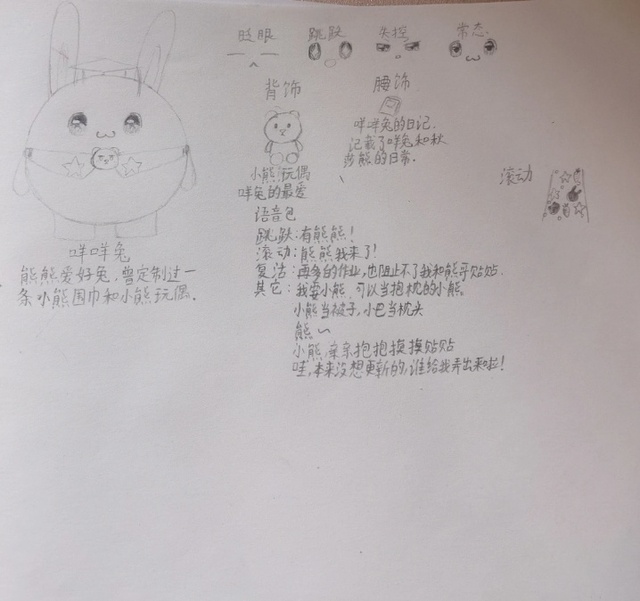 眨眼 跳跃 失控 常态
背饰 腰饰
咩咩兔的日记.
记载了咩兔和秋
莎熊的日常.
小熊玩偶
咩兔的最爱
滚动
语音包
跳跃:有熊熊!
滚动:熊熊我来了!
复活:再多的作业,也阻止不了我和熊子贴贴.
其它:我要小熊,可以当抱枕的小熊。
小熊当被子,小巴当枕头
熊~
小熊,亲亲抱抱摸摸贴贴
哇,本来没想更新的,谁给我弄出来啦!
咩咩兔
熊熊爱好兔,曾定制过一
条小熊围巾和小熊玩偶.